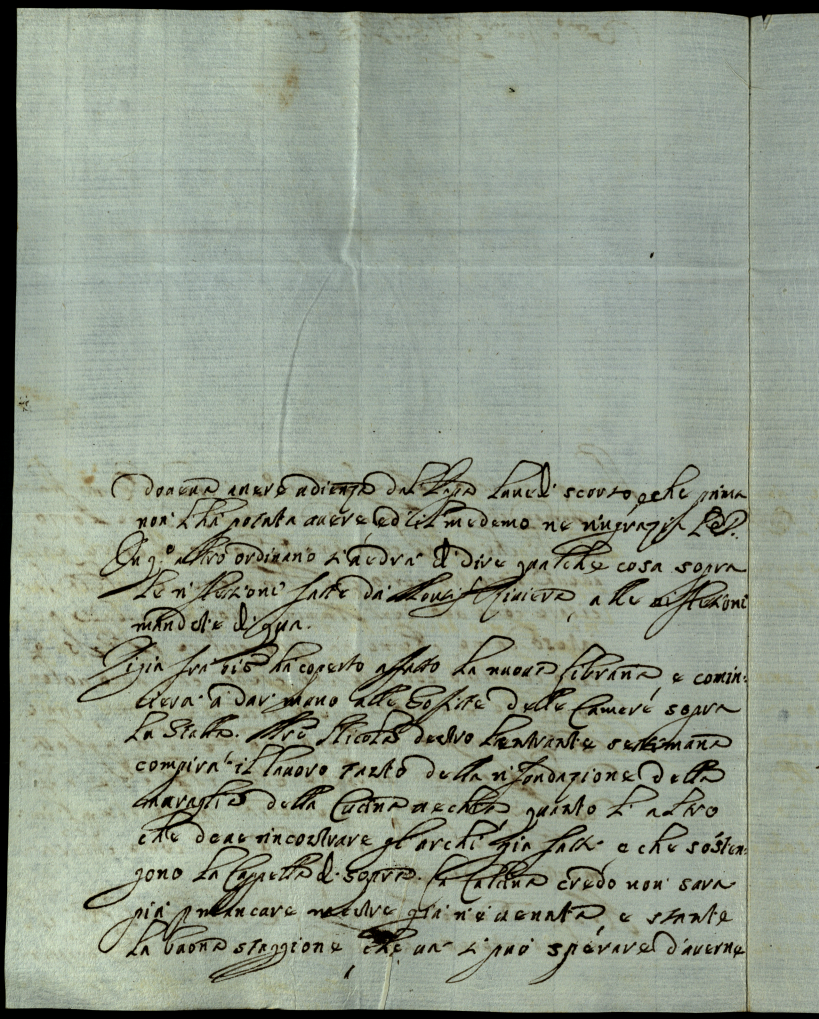 doueua auere udienza dal Papa l'aueui scorso p che prima
non l'ha potuta auere, ed il medemo ne ringrazia
In q.o altro ordinario si uedrà di dire qualche cosa sopra
le riflezioni fatte da Mons. Riuiera, alle riflezioni
mandate di qua.
Già fra ha coperto affatto la nuoua libraria e comin:
cierà à dar mano alle soffite delle Camere sopra
la Stalla. Mre Nicola dentro l'entrante settimana
compirà il lauoro tanto della rifondazione della
muraglia della Cucina uecchia, quanto l'altro
che deue rincontrare gl'archi già fatti e che sosten:
gono la Cappella di sopra. La Calcina credo non sarà
più p mancare mentre già n'è uenuta, e stante
la buona staggione che ua si può sperare d'auerne